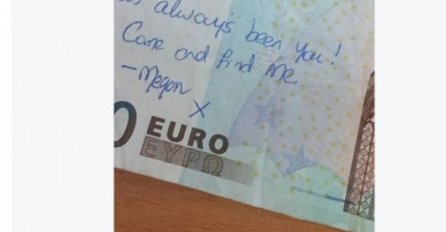 always been you!
Come and find me.
-Megan
X
0 EURO
EYPΩ